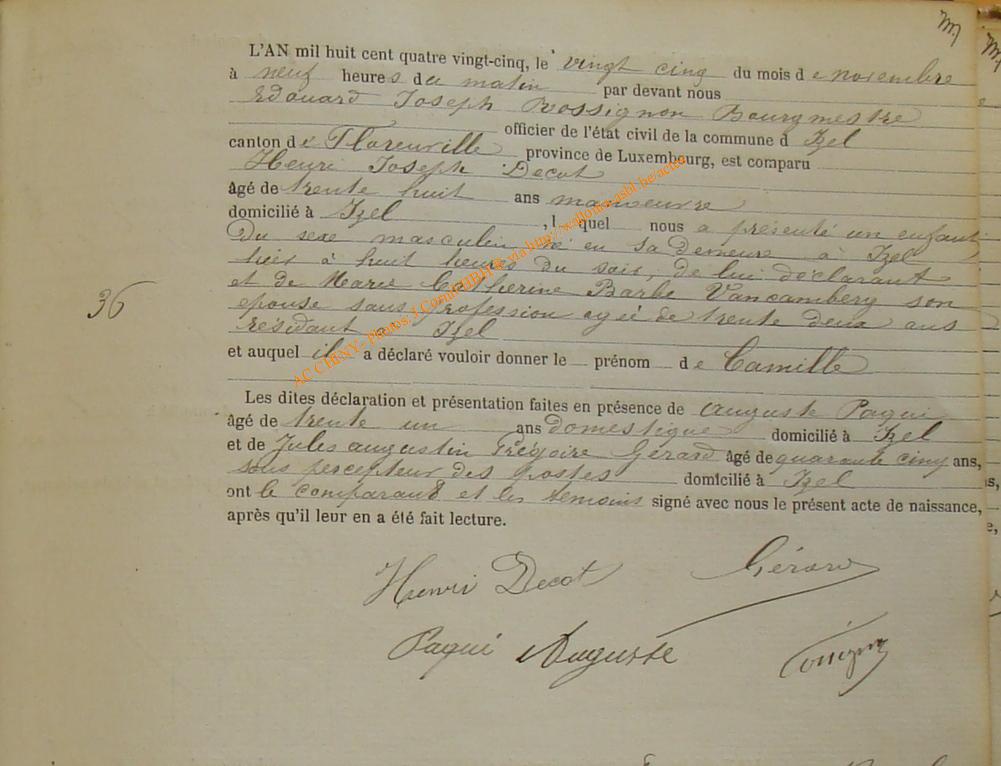 L'AN mil huit cent quatre vingt-cinq, le vingt cinq du mois de novembre
à neuf heures du matin par devant nous
Edouard Joseph Rossignon Bourgmestre
officier de l'état civil de la commune d Izel
canton de Florenville province de Luxembourg, est comparu
Henri Joseph Decot
âgé de trente huit ans manoeuvre
domicilié à Izel , l quel nous a présenté un enfant
Du sexe masculin né en sa Demeure à Izel
hier à huit heures du soir, de lui déclarant
et de Marie Catherine Barbe Vancamberg son
epouse sans profession agée de trente deux ans
résidant à Izel
36
et auquel il a déclaré vouloir donner le prénom de Camille
Les dites déclaration et présentation faites en présence de auguste Paqui
âgé de trente un ans domestique domicilié à Izel
et de Jules augustin Grégoire Gérard âgé de quarante cinq ans,
sous percepteur des postes domicilié à Izel
ont le comparant et les témoins signé avec nous le présent acte de naissance,
après qu'il leur en a été fait lecture.
Henri Decot Gérard
Paqui Auguste